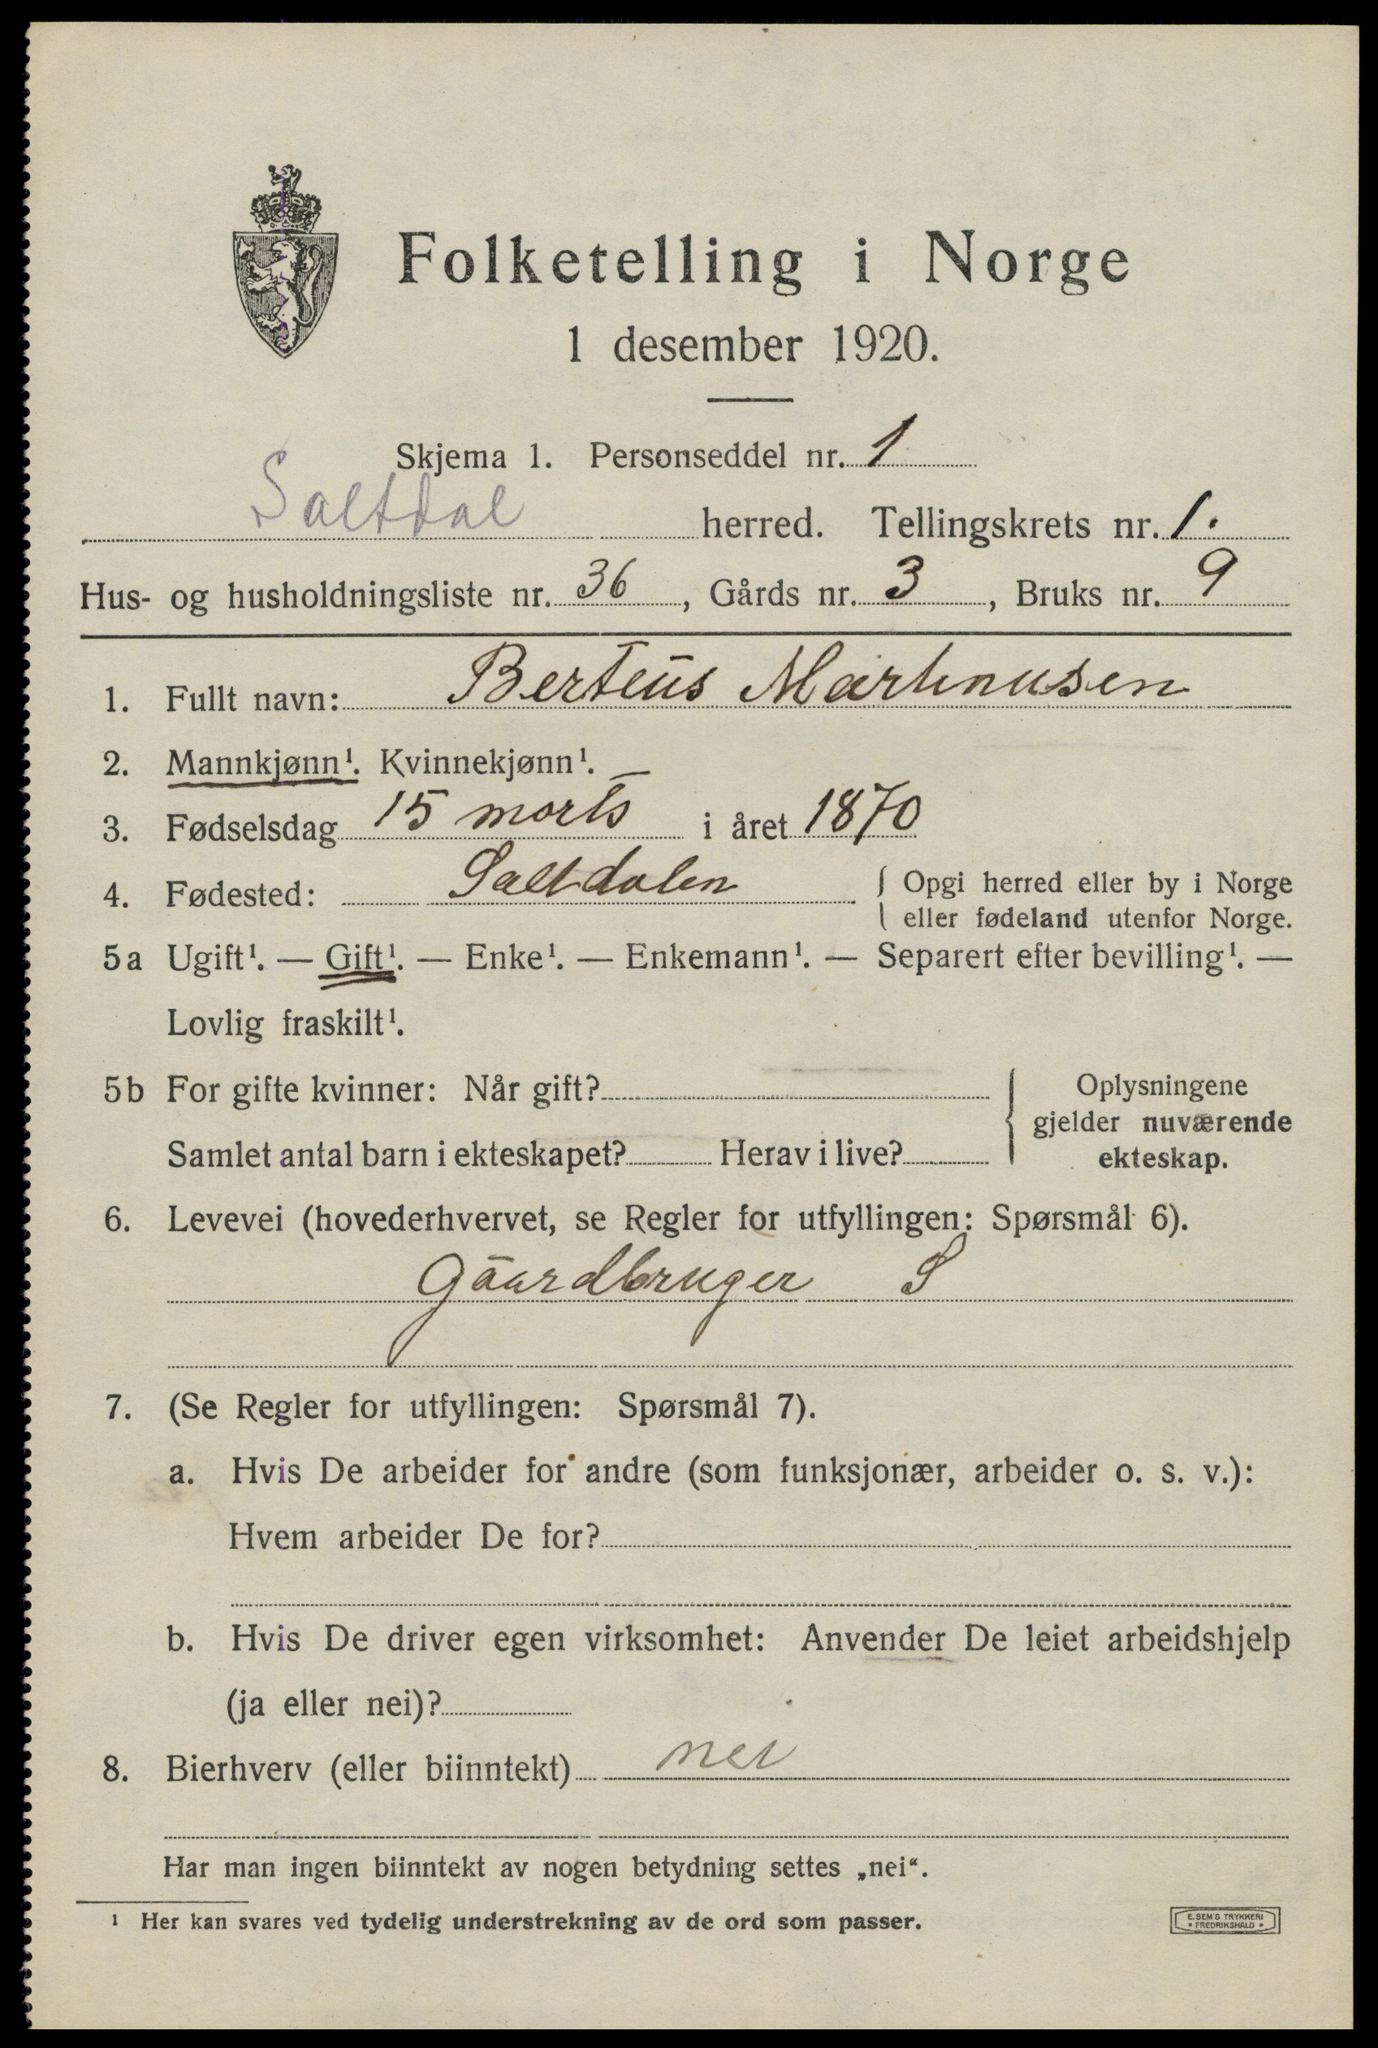 Folketelling i Norge
1 desember 1920.
Skjema 1. Personseddel nr. 1
Saltdal herred. Tellingskrets nr. 1.
Hus- og husholdningsliste nr. 36, Gårds nr. 3, Bruks nr. 9
1. Fullt navn: Berteus Marhnusen
2. Mannkjønn¹. Kvinnekjønn¹.
3. Fødselsdag 15 marts i året 1870
4. Fødested: Saltdalen { Opgi herred eller by i Norge
eller fødeland utenfor Norge.
5a Ugift¹. — Gift¹. — Enke¹. — Enkemann¹. — Separert efter bevilling¹. —
Lovlig fraskilt¹.
5b For gifte kvinner: Når gift? { Oplysningene
gjelder nuværende
Samlet antal barn i ekteskapet? Herav i live? ekteskap.
6. Levevei (hovederhvervet, se Regler for utfyllingen: Spørsmål 6).
Gaardbruger S
7. (Se Regler for utfyllingen: Spørsmål 7).
a. Hvis De arbeider for andre (som funksjonær, arbeider o. s. v.):
Hvem arbeider De for?
b. Hvis De driver egen virksomhet: Anvender De leiet arbeidshjelp
(ja eller nei)?
8. Bierhverv (eller biinntekt) nei
Har man ingen biinntekt av nogen betydning settes „nei“.
¹ Her kan svares ved tydelig understrekning av de ord som passer.
E. SEM'S TRYKKERI
* FREDRIKSHALD *